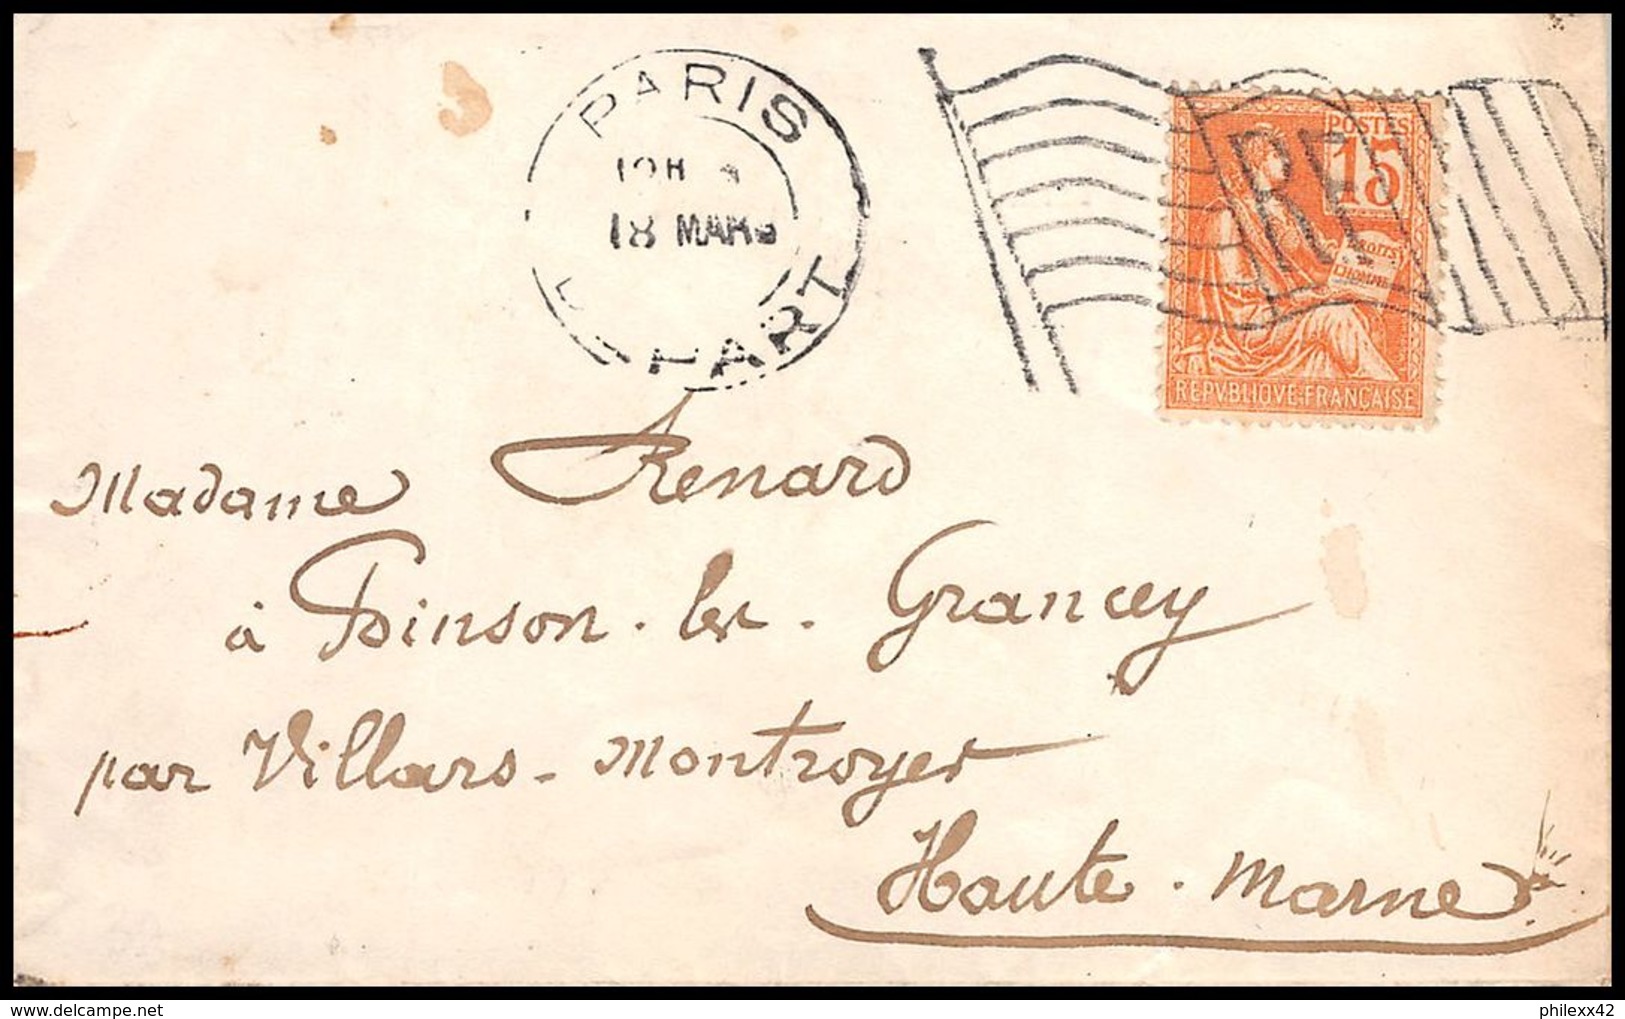 PARIS
18 MARS
DEPART
RF
POSTES
15
DROITS
L'HOMME
REPVBLIQVE FRANÇAISE
Madame Renard
à Poinson. les. Grancey
par Villars - Montroyer
Haute. Marne
philexx42